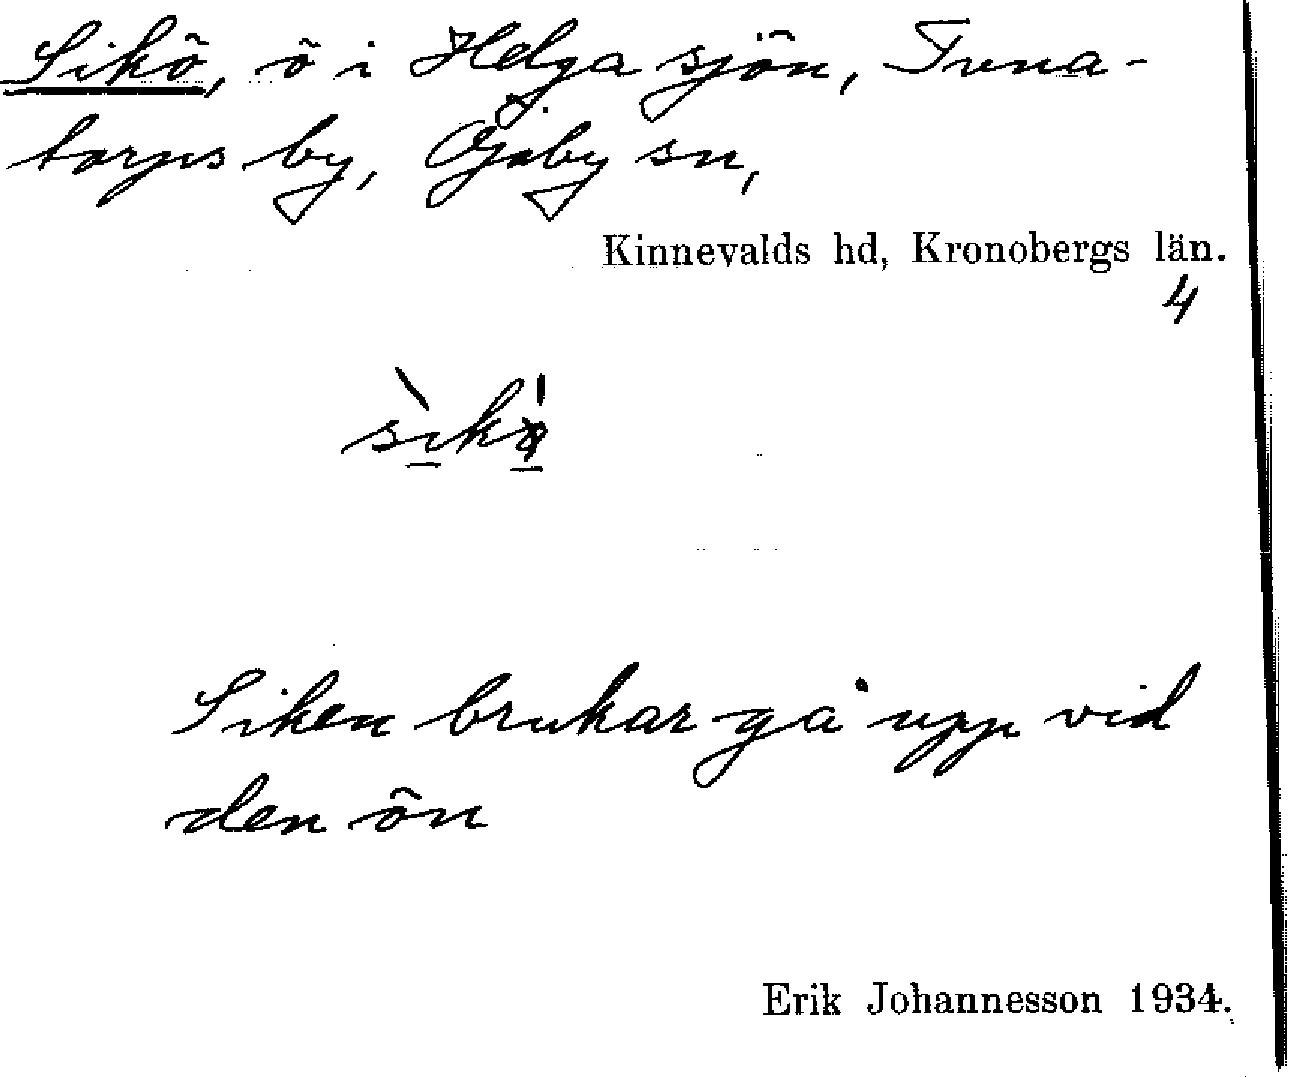 Sikö, ö i Helgasjön, Tvna-
torps by, Öjaby sn,
Kinnevalds hd, Kronobergs län.
4
Siken brukar gå upp vid
den ön
Erik Johannesson 1934.